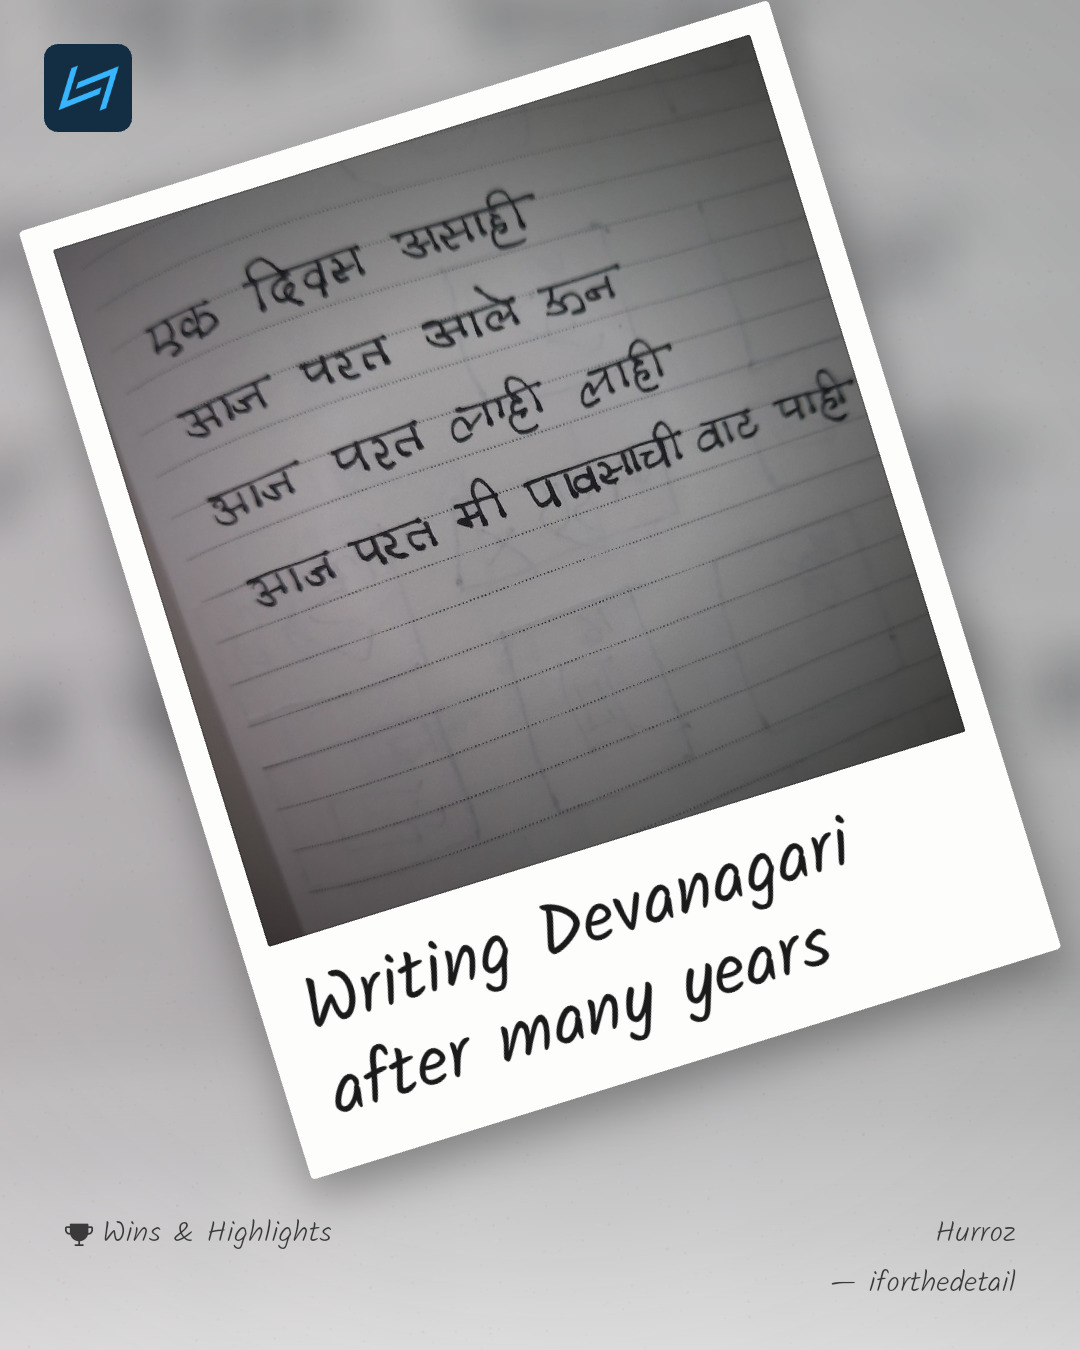 एक दिवस असाही
आज परत आले ऊन
आज परत लाही लाही
आज परत मी पावसाची वाट पाही
Writing Devanagari
after many years
Wins & Highlights
Hurroz
— iforthedetail